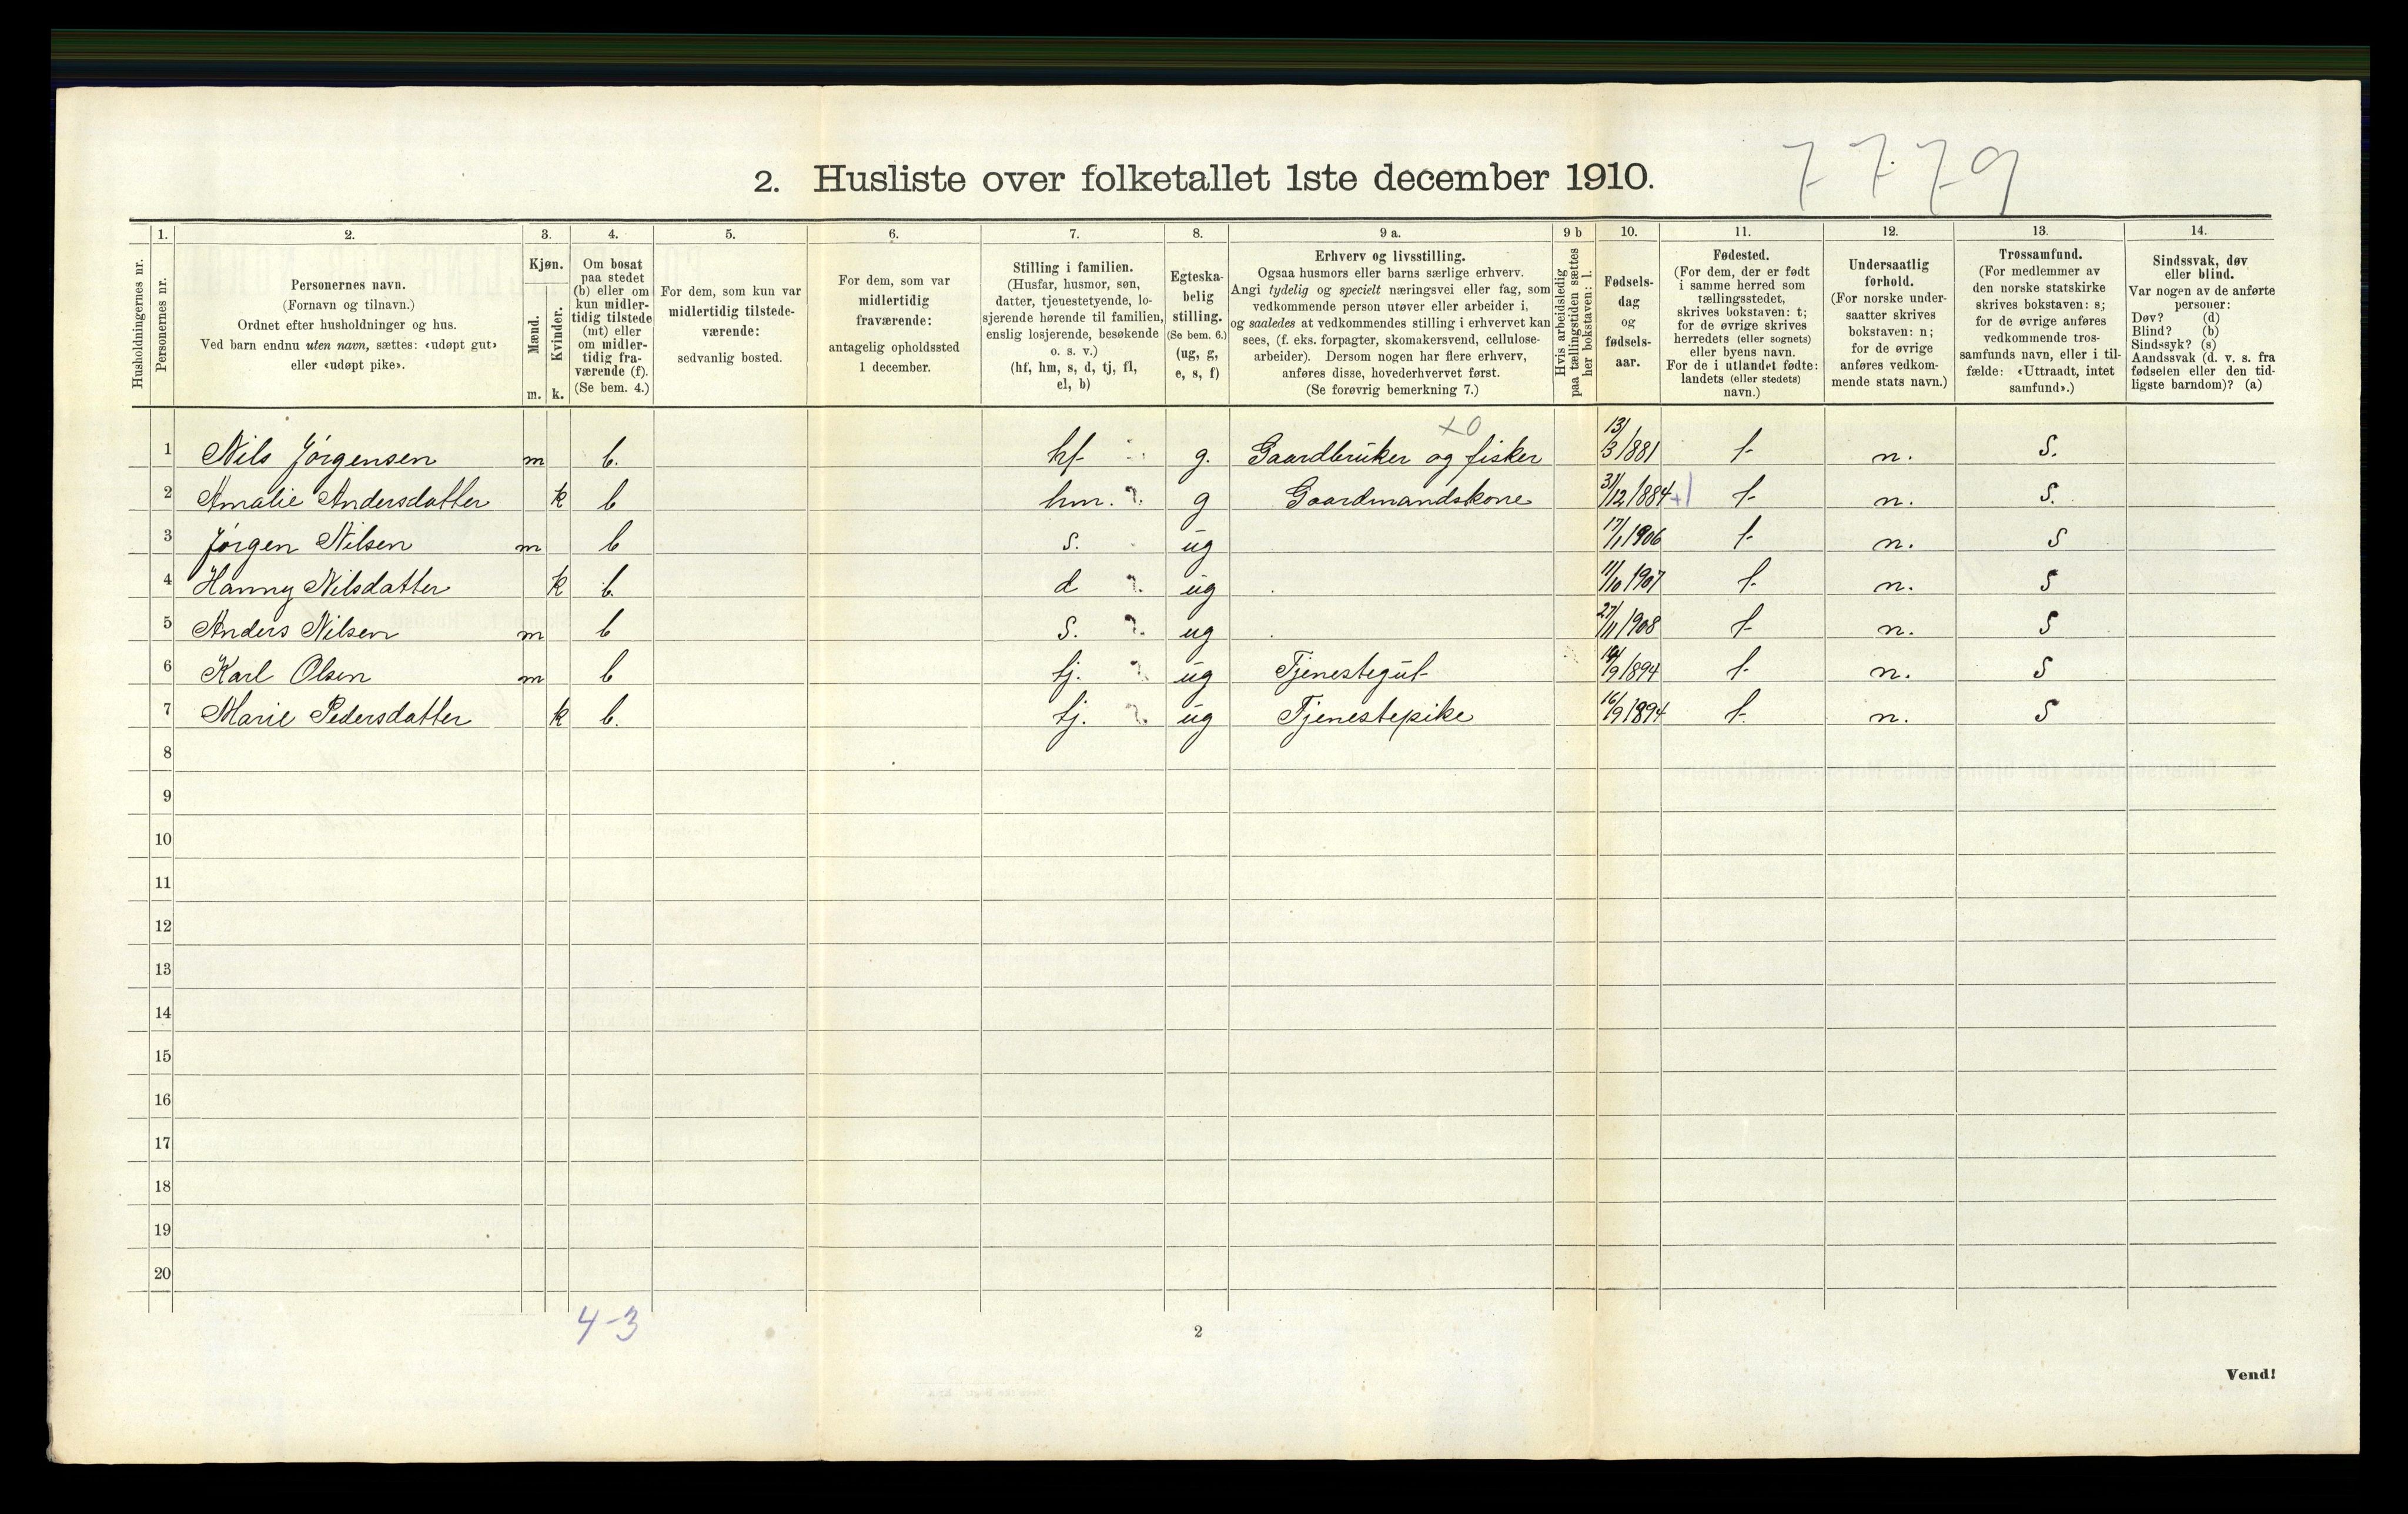 2. Husliste over folketallet 1ste december 1910.
7 7 7 9
Husholdningernes nr.
1.
Personernes nr.
2.
Personernes navn.
(Fornavn og tilnavn.)
Ordnet efter husholdninger og hus.
Ved barn endnu uten navn, sættes: «udøpt gut»
eller «udøpt pike».
3.
Kjøn.
Mænd.
Kvinder.
m. k.
4.
Om bosat
paa stedet
(b) eller om
kun midler-
tidig tilstede
(mt) eller
om midler-
tidig fra-
værende (f).
(Se bem. 4.)
5.
For dem, som kun var
midlertidig tilstede-
værende:
sedvanlig bosted.
6.
For dem, som var
midlertidig
fraværende:
antagelig opholdssted
1 december.
7.
Stilling i familien.
(Husfar, husmor, søn,
datter, tjenestetyende, lo-
sjerende hørende til familien,
enslig losjerende, besøkende
o. s. v.)
(hf, hm, s, d, tj, fl,
el, b)
8.
Egteska-
belig
stilling.
(Se bem. 6.)
(ug, g,
e, s, f)
9 a.
Erhverv og livsstilling.
Ogsaa husmors eller barns særlige erhverv.
Angi tydelig og specielt næringsvei eller fag, som
vedkommende person utøver eller arbeider i,
og saaledes at vedkommendes stilling i erhvervet kan
sees, (f. eks. forpagter, skomakersvend, cellulose-
arbeider). Dersom nogen har flere erhverv,
anføres disse, hovederhvervet først.
(Se forøvrig bemerkning 7.)
9 b
Hvis arbeidsledig
paa tællingstiden sættes
her bokstaven: l.
10.
Fødsels-
dag
og
fødsels-
aar.
11.
Fødested.
(For dem, der er født
i samme herred som
tællingsstedet,
skrives bokstaven: t;
for de øvrige skrives
herredets (eller sognets)
eller byens navn.
For de i utlandet fødte:
landets (eller stedets)
navn.)
12.
Undersaatlig
forhold.
(For norske under-
saatter skrives
bokstaven: n;
for de øvrige
anføres vedkom-
mende stats navn.)
13.
Trossamfund.
(For medlemmer av
den norske statskirke
skrives bokstaven: s;
for de øvrige anføres
vedkommende tros-
samfunds navn, eller i til-
fælde: «Uttraadt, intet
samfund».)
14.
Sindssvak, døv
eller blind.
Var nogen av de anførte
personer:
Døv? (d)
Blind? (b)
Sindssyk? (s)
Aandssvak (d. v. s. fra
fødselen eller den tid-
ligste barndom)? (a)
x0
1 Nils Jörgensen m b. hf g. Gaardbruker og fisker 13/3 1881 t n. S.
2 Amalie Andersdatter k b hm. g Gaardmandskone 31/12 1884 t n. S.
3 Jörgen Nilsen m b s. ug 17/1 1906 t n. S
4 Hanny Nilsdatter k b. d ug 11/10 1907 t n. S
5 Anders Nilsen m b S. ug 27/11 1908 t n. S
6 Karl Olsen m b tj. ug Tjenestegut 14/9 1894 t n. S
7 Marie Pedersdatter k b. tj. ug Tjenestepike 16/9 1894 t n. S
8
9
10
11
12
13
14
15
16
17
18
19
20
4-3
2
Vend!